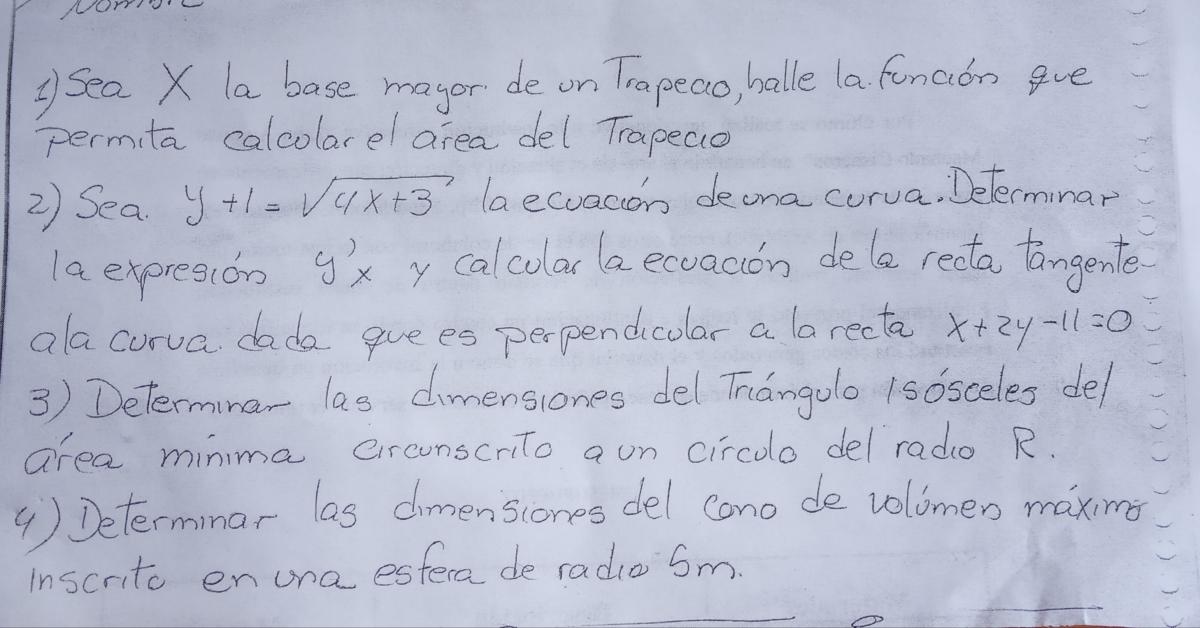 Nombre
1) Sea X la base mayor de un Trapecio, halle la función que
permita calcular el área del Trapecio
2) Sea. y+1=√4x+3 la ecuación de una curva. Determinar
la expresión y'x y calcular la ecuación de la recta tangente-
a la curva dada que es perpendicular a la recta x+2y-11=0
3) Determinar las dimensiones del Triángulo isósceles del
área mínima circunscrito a un círculo del radio R.
4) Determinar las dimensiones del cono de volúmen máximo
inscrito en una esfera de radio 5m.